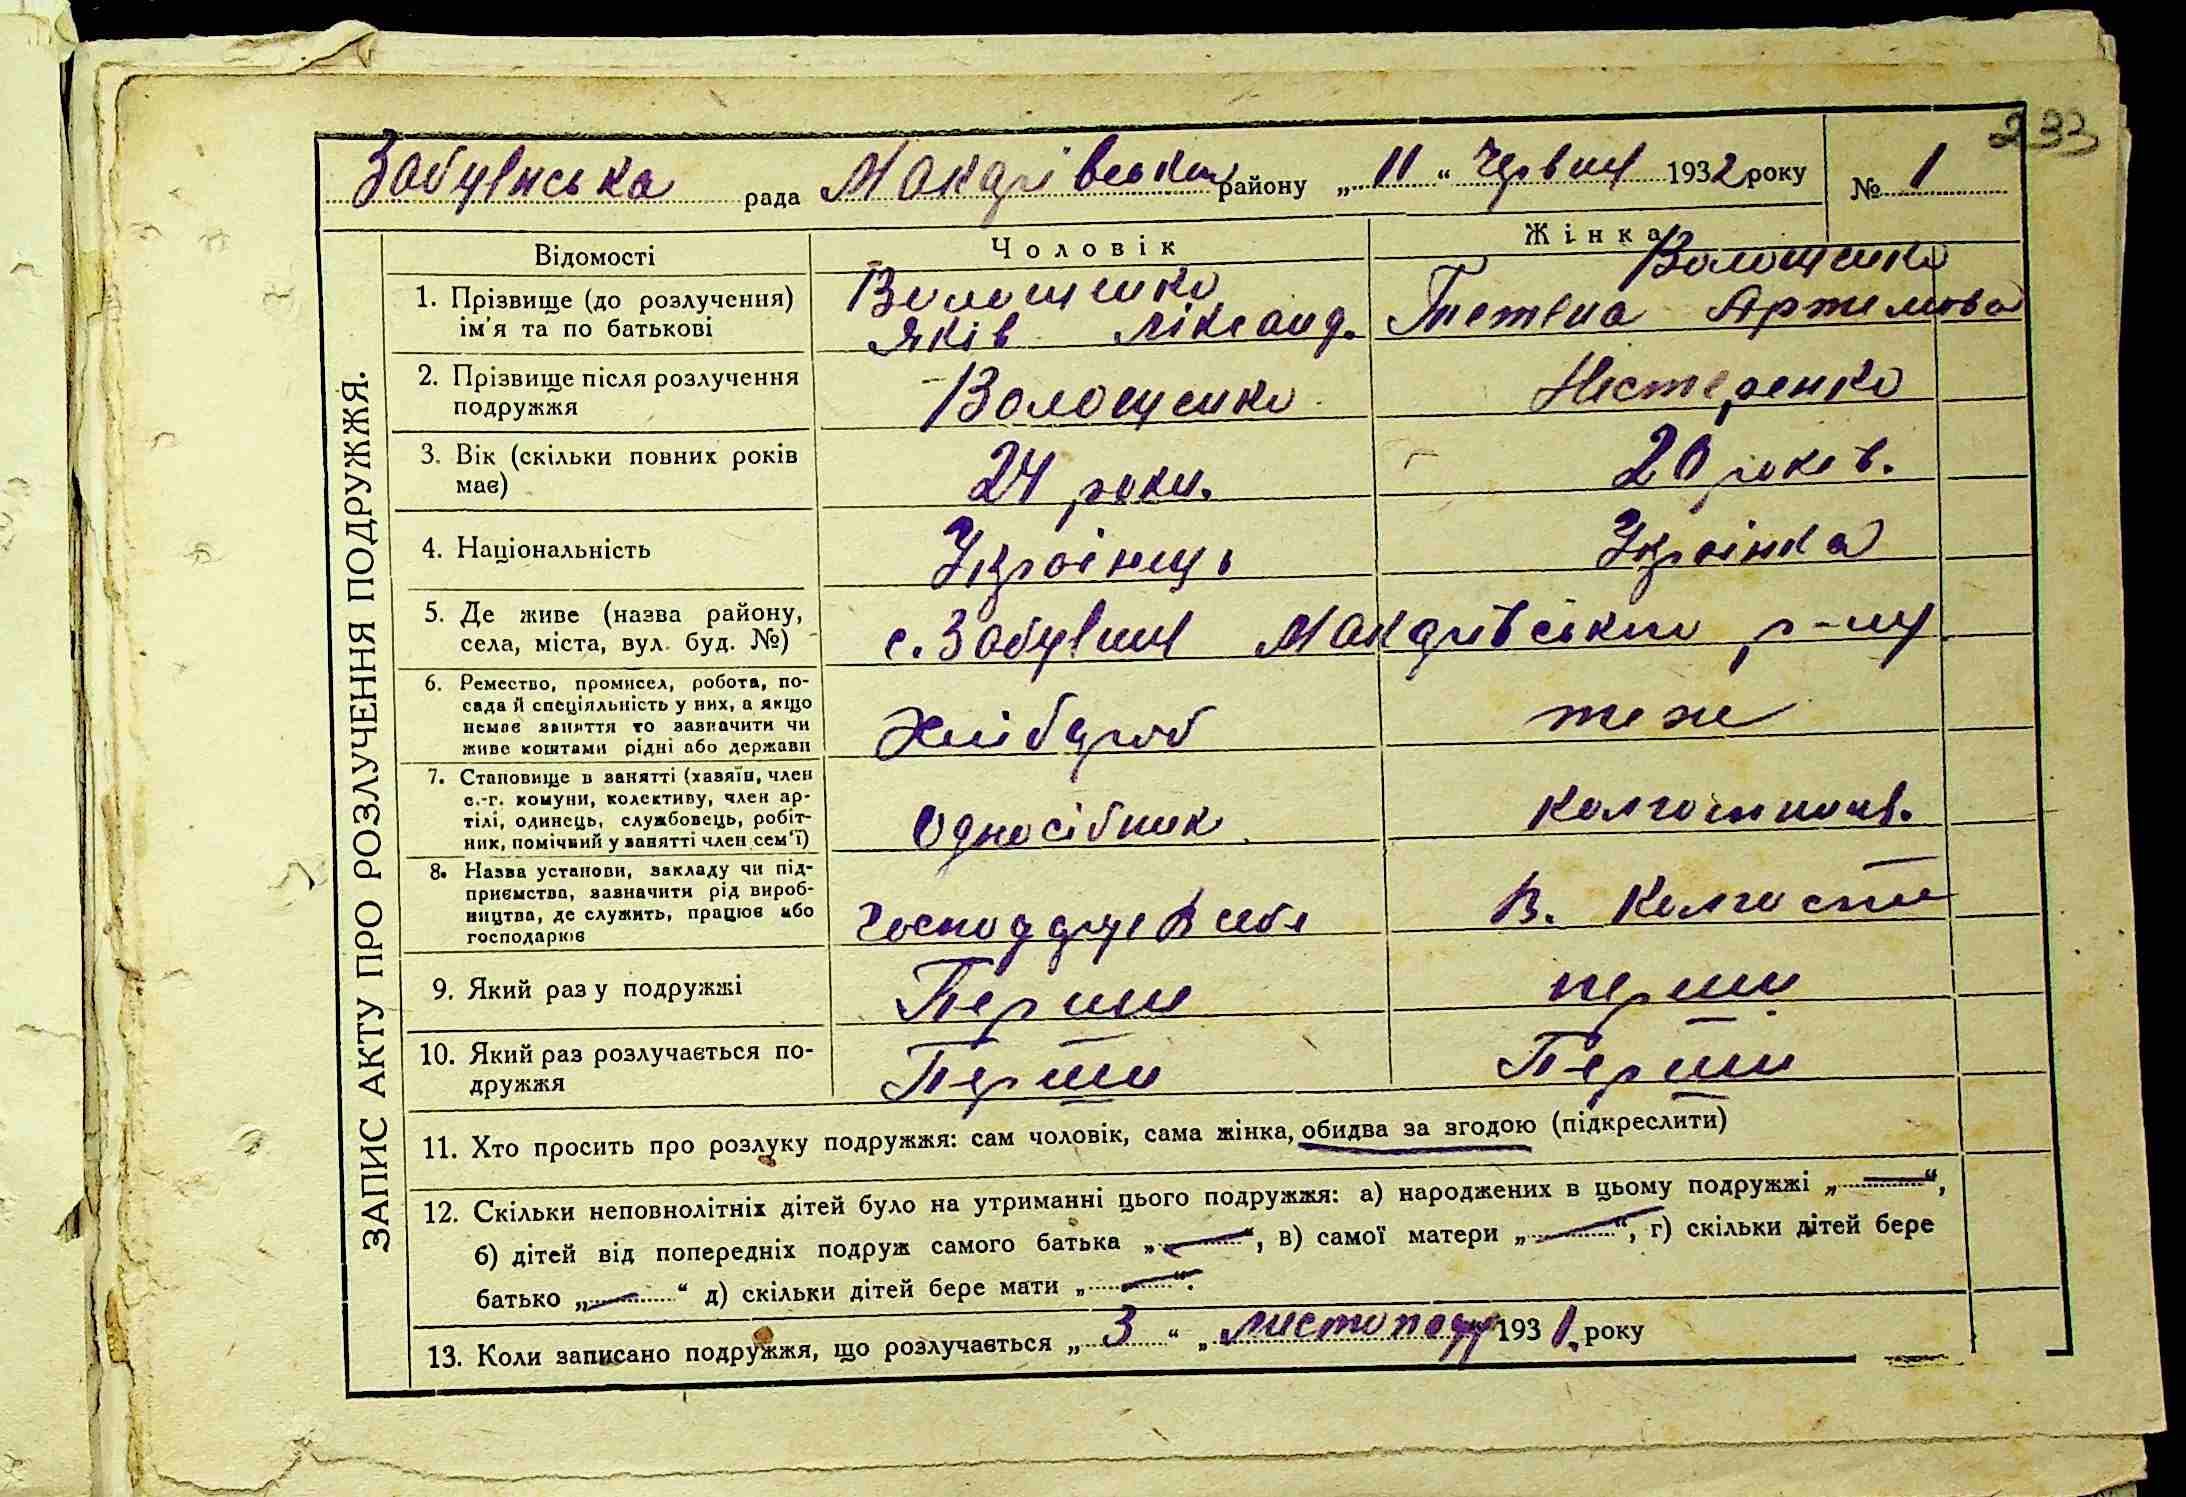 233
Забуянська рада Макарівського району „ 11 “ Червня 1932 року № 1
ЗАПИС АКТУ ПРО РОЗЛУЧЕННЯ ПОДРУЖЖЯ.
Відомості Чоловік Жінка
1. Прізвище (до розлучення) Волощенко Волощенко
ім'я та по батькові Яків Ліксанд. Тетена Артемова
2. Прізвище після розлучення Волощенко Нестеренко
подружжя
3. Вік (скільки повних років 24 роки. 20 років.
має)
4. Національність Українець Українка
5. Де живе (назва району, с. Забуяння Макарівського р-ну
села, міста, вул. буд. №)
6. Ремество, промисел, робота, по-
сада й спеціяльність у них, а якщо Хлібороб теж
немає заняття то зазначити чи
живе коштами рідні або держави
7. Становище в занятті (хазяїн, член
с.-г. комуни, колективу, член ар- Односібник колгоспниця.
тілі, одинець, службовець, робіт-
ник, помічний у занятті член сем'ї)
8. Назва установи, закладу чи під-
приємства, зазначити рід вироб- В. Колгоспі
ництва, де служить, працює або в себе
господарює
9. Який раз у подружжі Перши перши
10. Який раз розлучається по- Перши Перши
дружжя
11. Хто просить про розлуку подружжя: сам чоловік, сама жінка, обидва за згодою (підкреслити)
12. Скільки неповнолітніх дітей було на утриманні цього подружжя: а) народжених в цьому подружжі „ — “,
б) дітей від попередніх подруж самого батька „ — “, в) самої матери „ — “, г) скільки дітей бере
батько „ — “ д) скільки дітей бере мати „ — “.
13. Коли записано подружжя, що розлучається „ 3 “ „ листопаду 1931. року